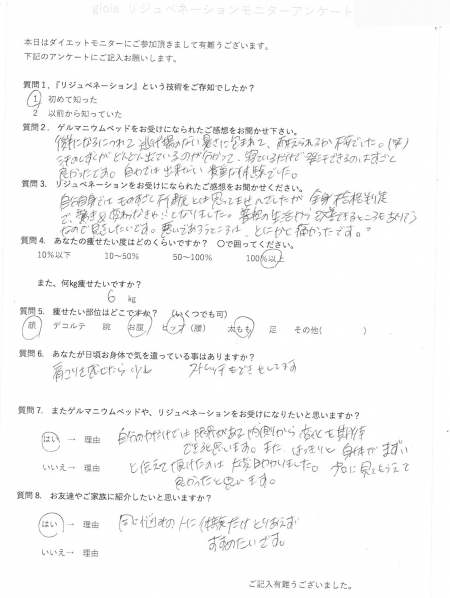 gioia リジュベネーションモニターアンケート
本日はダイエットモニターにご参加頂きまして有難うございます。
下記のアンケートにご記入お願いします。
質問1.『リジュベネーション』という技術をご存知でしたか？
1 初めて知った
2 以前から知っていた
質問2. ゲルマニウムベッドをお受けになられたご感想をお聞かせ下さい。
横になるにつれて逃げ場のない暑さに包まれて、耐えられるか不安でした。(笑)
汗のしずくがどんどん出ているのが分かって、寝ているだけで
良かったです。自力では出来ない貴重な体験でした。
質問3. リジュベネーションをお受けになられたご感想をお聞かせください。
自分自身ではものすごく不健康とは思ってませんでしたが 全身
なので見直したいです。悪いであろうところは、とにかく痛かったです。
質問4. あなたの痩せたい度はどのくらいですか？ 〇で囲ってください。
10％以下 10～50％ 50～100％ 100％以上
また、何kg痩せたいですか？
6 kg
質問5. 痩せたい部位はどこですか？ （いくつでも可）
顔 デコルテ 腕 お腹 ヒップ（腰） 太もも 足 その他( )
質問6. あなたが日頃お身体で気を遣っている事はありますか？
肩こりを感じたら少し ストレッチをしてます
質問7. またゲルマニウムベッドや、リジュベネーションをお受けになりたいと思いますか？
はい → 理由 自分の力だけでは限界があって内側から変化を期待
できると思います。また はっきりと 身体がまずい
いいえ→ 理由 と伝えて頂けたのは 大変助かりました。プロに見てもらえて
良かったと思います。
質問8. お友達やご家族に紹介したいと思いますか？
はい → 理由 同じ悩みの人に体験だけとりあえず
すすめたいです。
いいえ→ 理由
ご記入有難うございました。